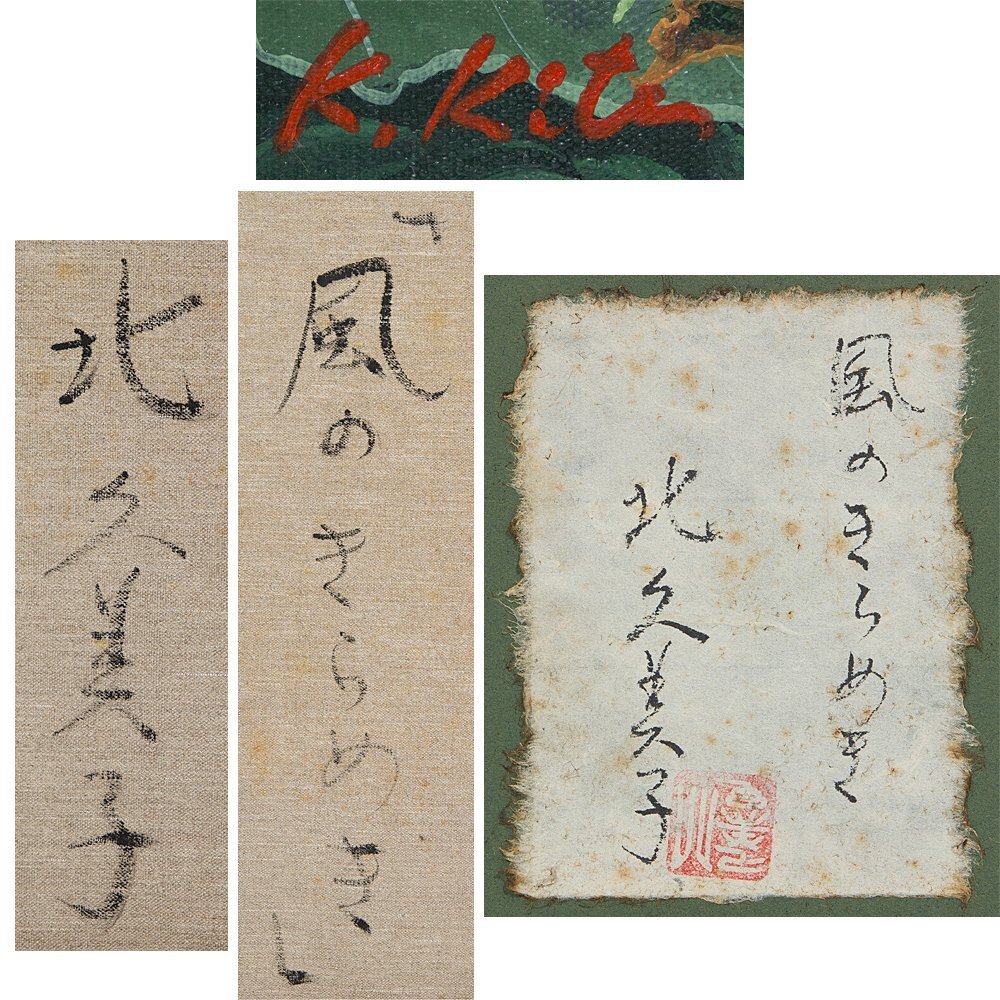 K. Kita
北久美子
「風のきらめき」
風のきらめき
北久美子